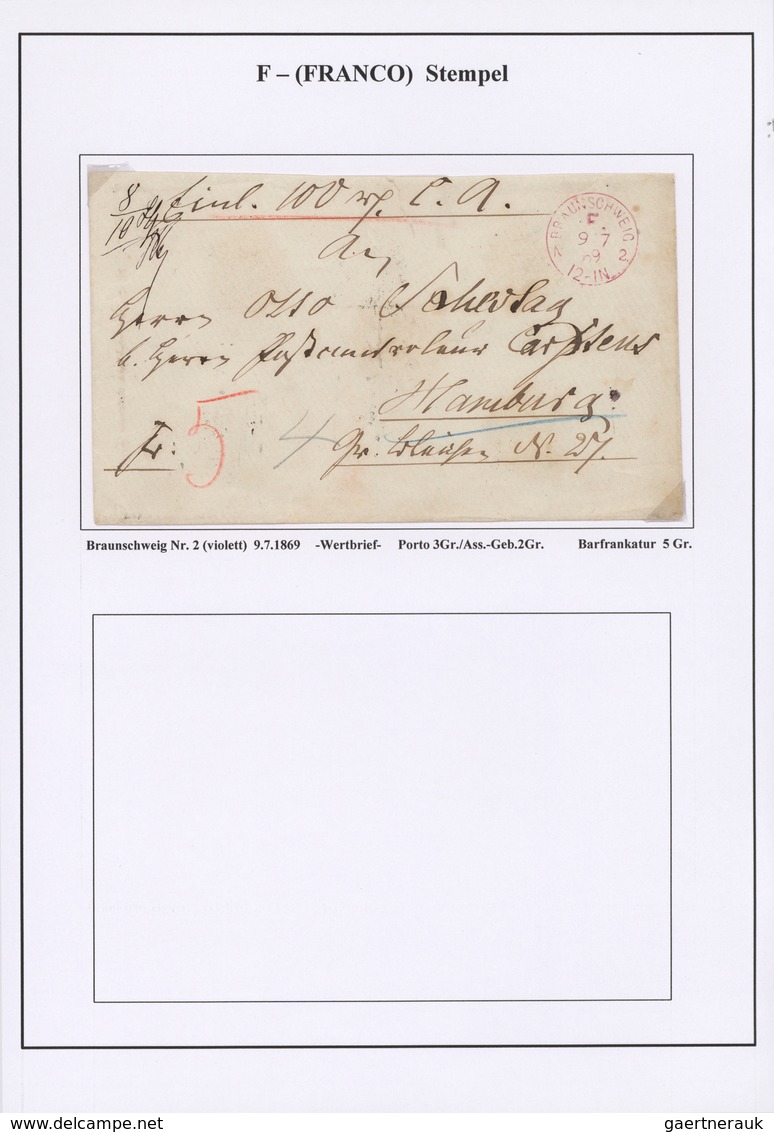 F – (FRANCO) Stempel
8/10
Einl. 100 rℓ. C. A.
BRAUNSCHWEIG 2
F.
9 7
69
12-1N
An
Herrn Otto
b. Herrn Carstens
Hamburg.
Fr: 5 4 Gr. Bleichen N. 27.
Braunschweig Nr. 2 (violett) 9.7.1869 -Wertbrief- Porto 3Gr./Ass.-Geb.2Gr. Barfrankatur 5 Gr.
gaertnerauk
delcampe.net